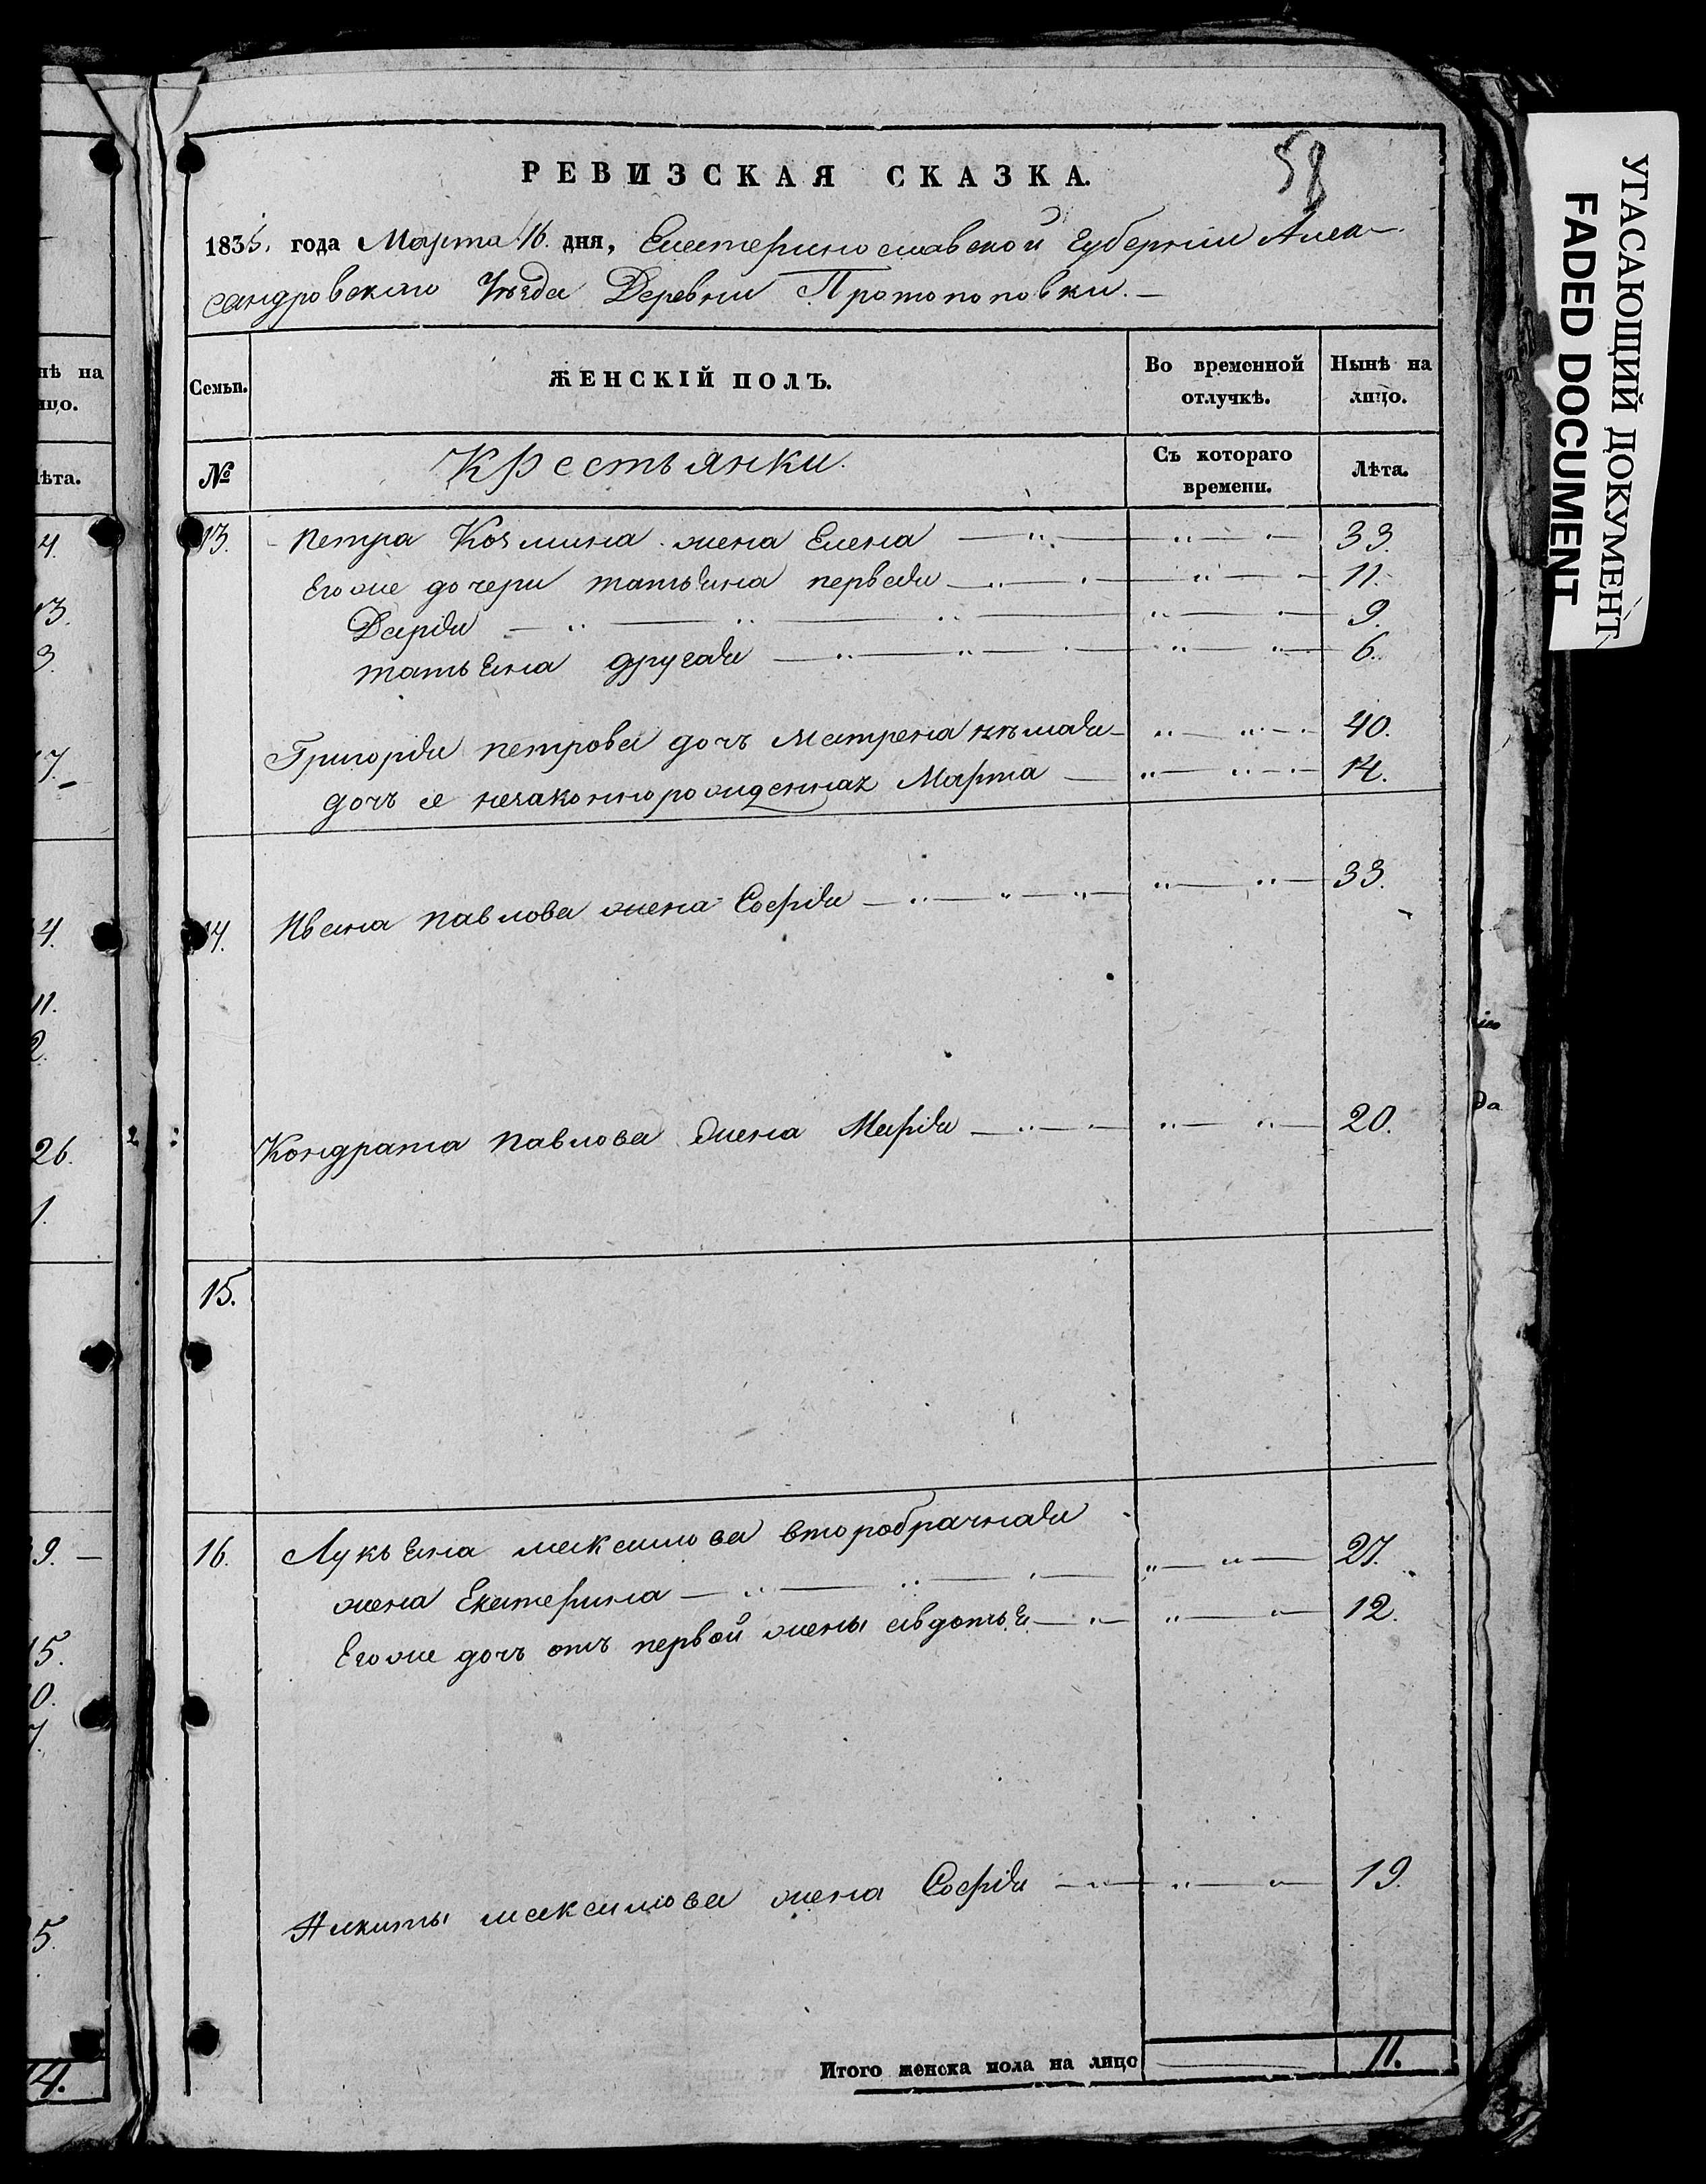 РЕВИЗСКАЯ СКАЗКА.
58
1835. года Марта 16. дня, Екатеринославской губернии Алек-
сандровскаго Уѣзда Деревни Протопоповки. —
Семьи.
ЖЕНСКІЙ ПОЛЪ.
Во временной отлучкѣ.
Нынѣ на лицо.
№
Крестьянки.
Съ котораго времени.
Лѣта.
13. Петра Козмина жена Елена — 33.
Егоже дочери татьяна первая — 11.
Дарья — 9.
татьяна другая — 6.
Григорья петрова дочь Матрена нѣмая — 40.
дочь ее незаконнорожденная Марта — 14.
14. Ивана павлова жена Софья — 33.
Кондрата павлова жена Марья — 20.
15.
16. Лукьяна максимова второбрачная
жена Екатерина — 27.
Егоже дочь отъ первой жены авдотья — 12.
Никиты максимова жена Софья — 19.
Итого женска пола на лицо — 11.
УГАСАЮЩИЙ ДОКУМЕНТ
FADED DOCUMENT
нѣ на
лицо.
лѣта.
4.
13.
3.
17. —
14.
11.
2.
26.
1.
9. —
15.
10.
7.
5.
14.
да